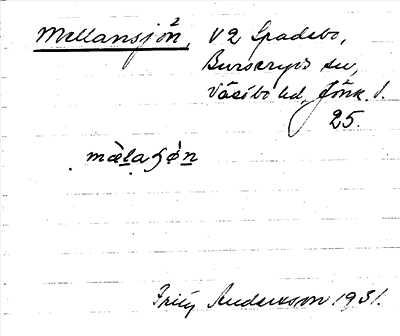 Mellansjön, V2 Spadebo,
Burseryds sn,
Västbo hd, Jönk. l.
25.
mæ̀laʃǿn
Fritz Andersson 1931.